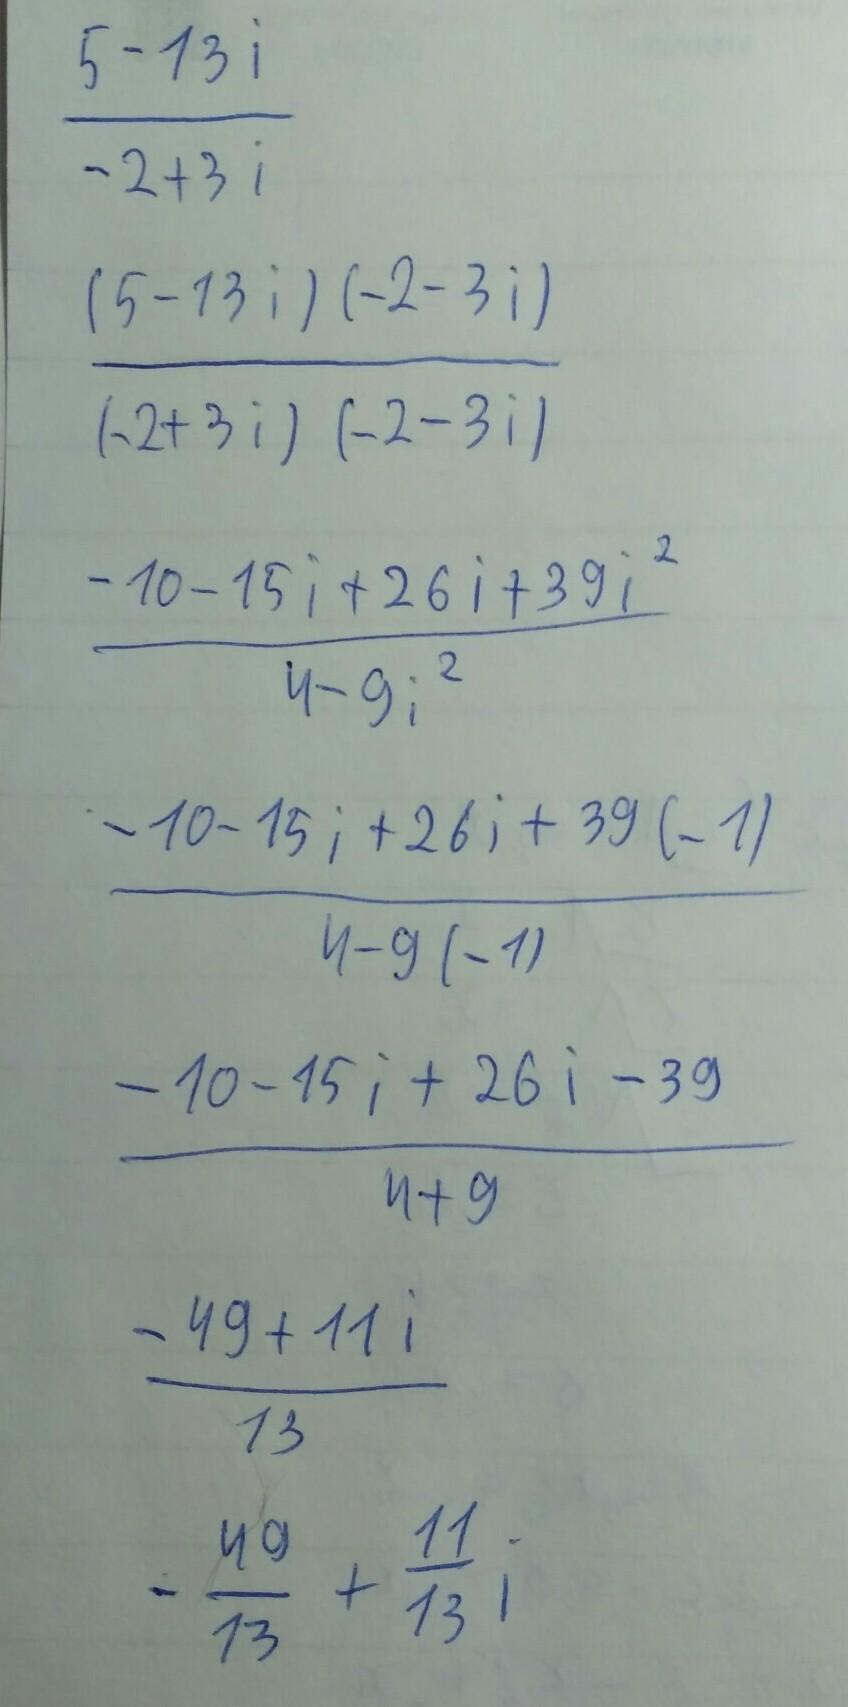 5-13i
-2+3i
(5-13i)(-2-3i)
(-2+3i)(-2-3i)
-10-15i+26i+39i²
4-9i²
-10-15i+26i+39(-1)
4-9(-1)
-10-15i+26i-39
4+9
-49+11i
13
-49/13 + 11/13 i